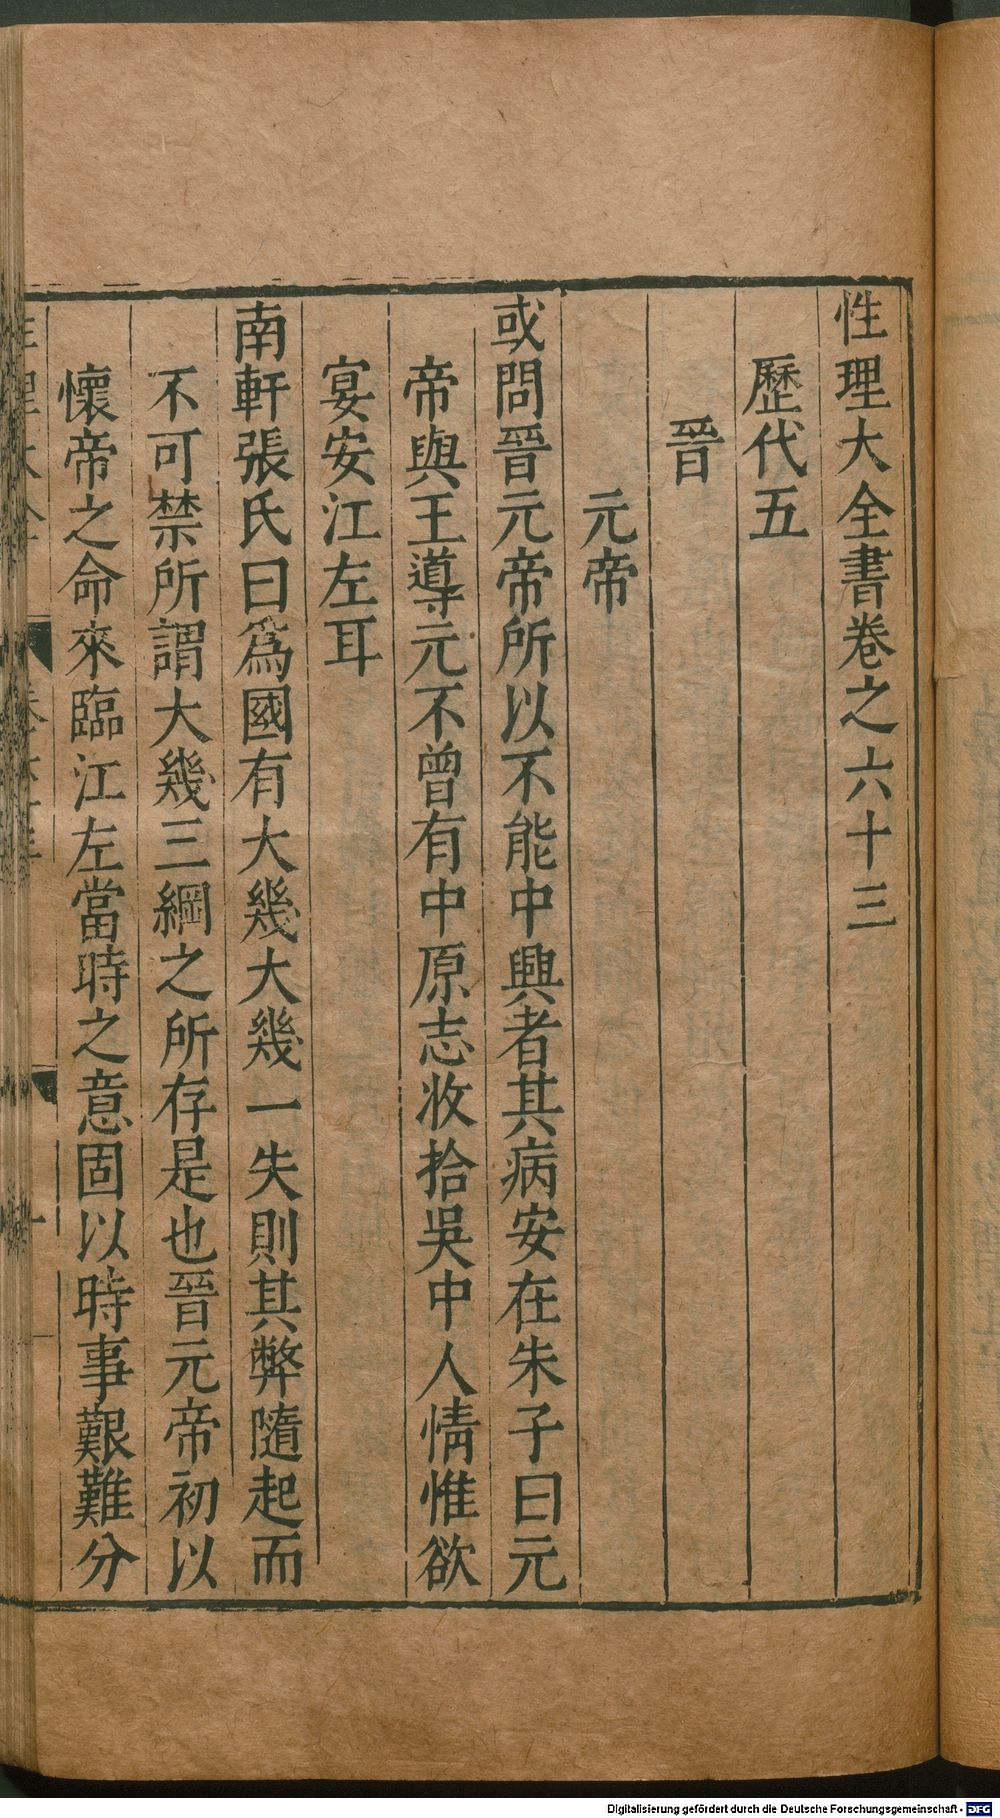 性理大全書卷之六十三
歷代五
晉
元帝
或問晉元帝所以不能中興者其病安在朱子曰元
帝與王導元不曾有中原志收拾吳中人情惟欲
宴安江左耳
南軒張氏曰爲國有大幾大幾一失則其弊隨起而
不可禁所謂大幾三綱之所存是也晉元帝初以
懷帝之命來臨江左當時之意固以時事艱難分
Digitalisierung gefördert durch die Deutsche Forschungsgemeinschaft - DFG